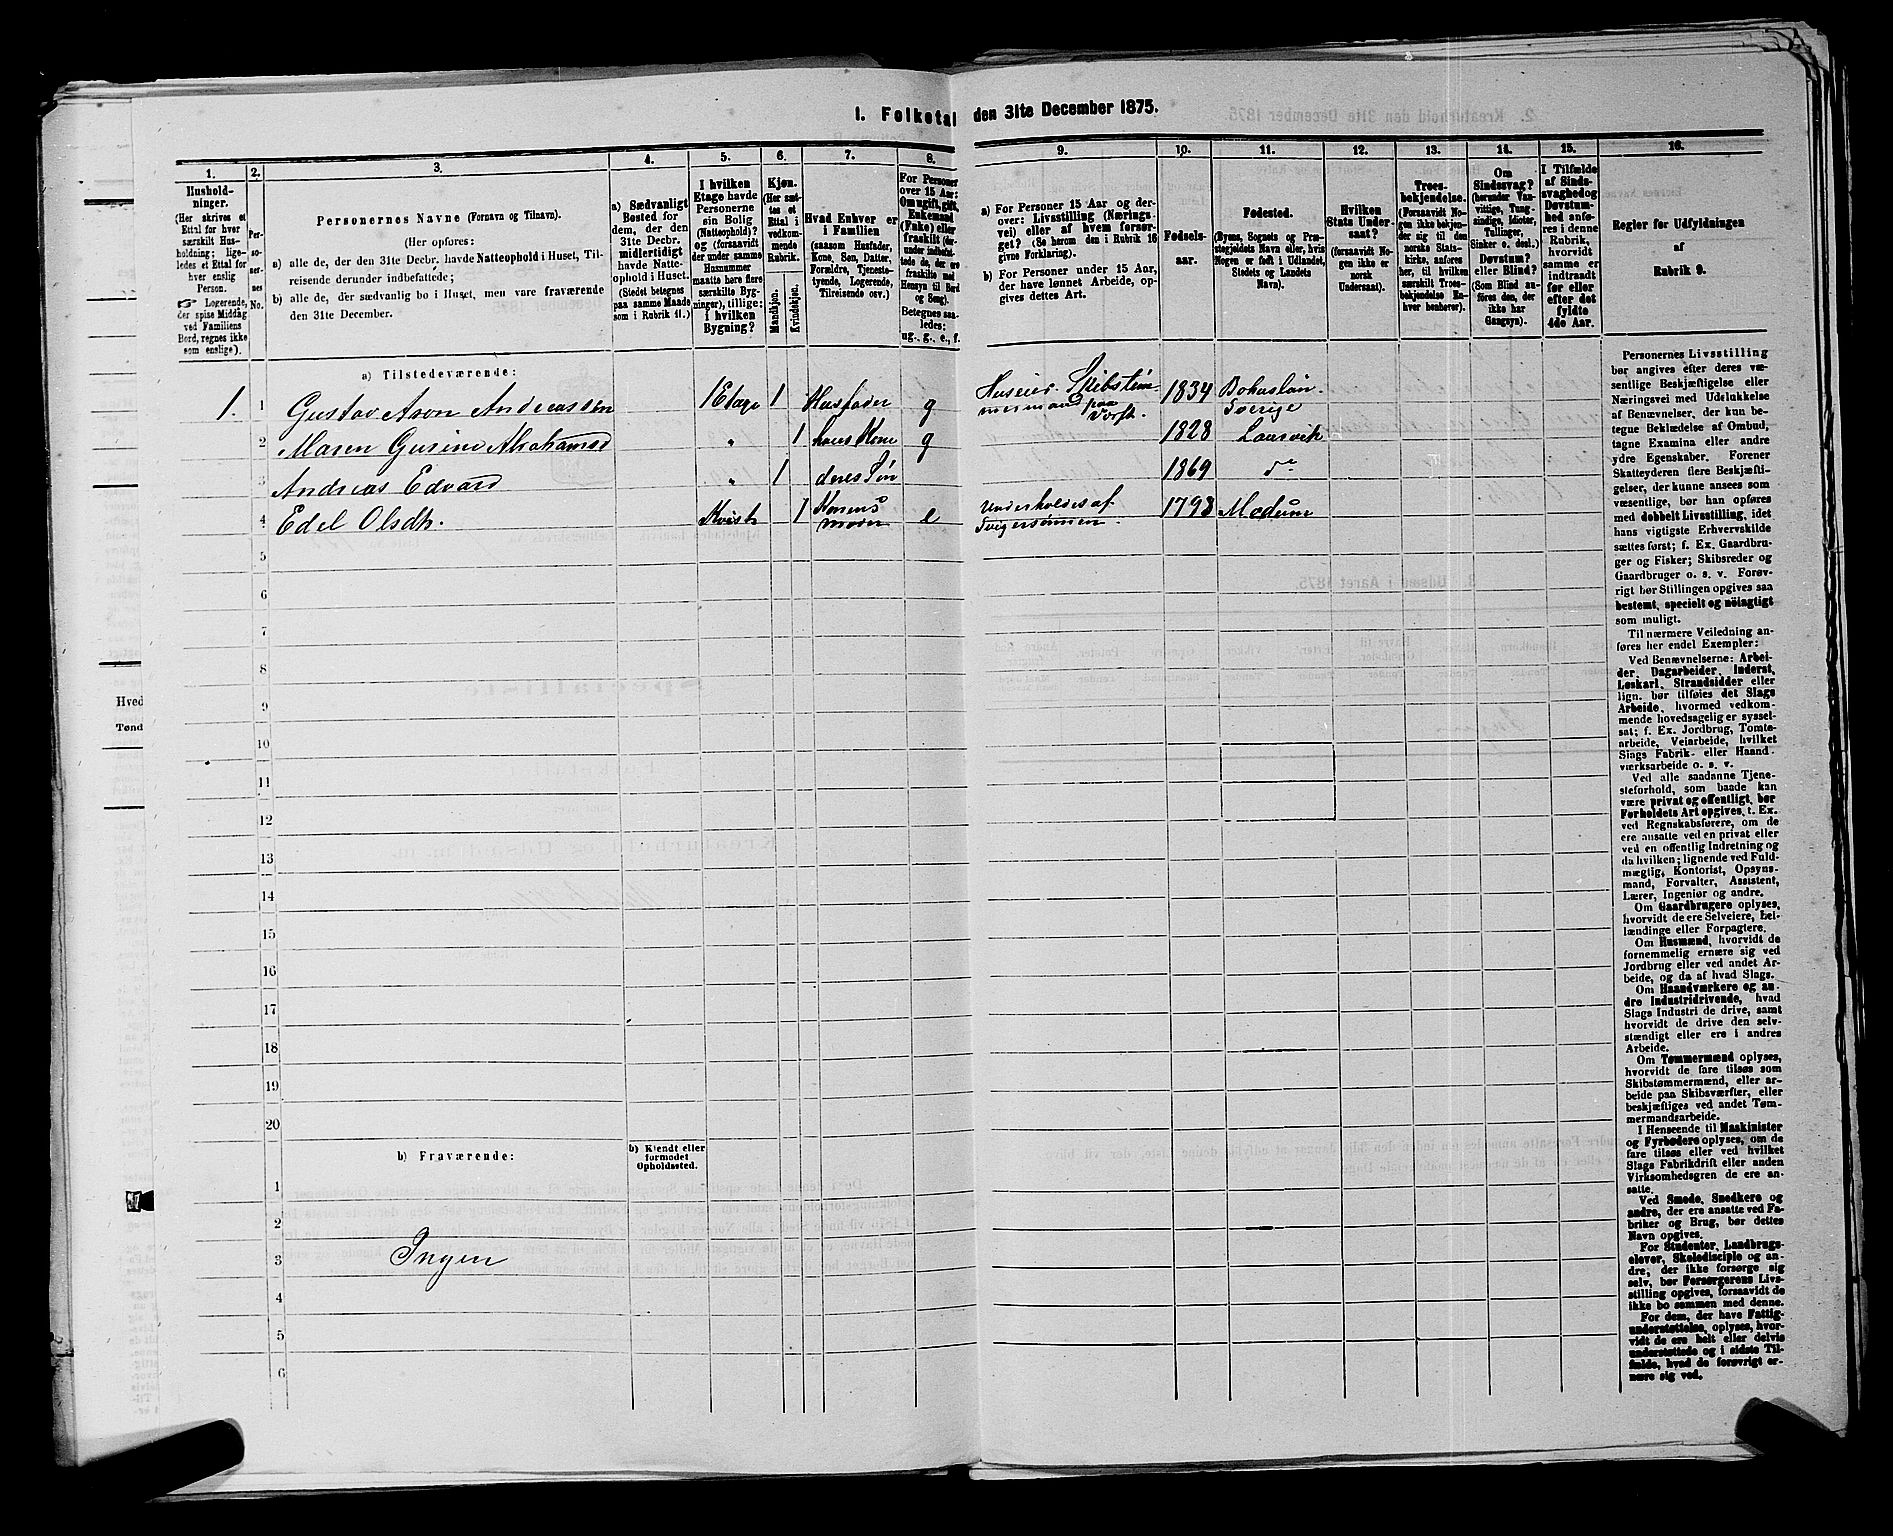 I. Folketal den 31te December 1875.
1.
Hushold-
ninger.
(Her skrives et
Ettal for hver
særskilt Hus-
holdning; lige-
ledes et Ettal for
hver enslig
Person.
☞ Logerende,
der spise Middag
ved Familiens
Bord, regnes ikke
som enslige).
2.
Per-
so-
ner-
nes
No.
3.
Personernes Navne (Fornavn og Tilnavn).
(Her opføres:
a) alle de, der den 31te Decbr. havde Natteophold i Huset, Til-
reisende derunder indbefattede;
b) alle de, der sædvanlig bo i Huset, men vare fraværende
den 31te December.
4.
a) Sædvanligt
Bosted for
dem, der den
31te Decbr.
midlertidigt
havde Natte-
ophold i Huset.
(Stedet betegnes
paa samme Maade
som i Rubrik 11.)
5.
I hvilken
Etage havde
Personerne
sin Bolig
(Natteophold)?
og (forsaavidt
der under samme
Husnummer
maatte høre flere
særskilte Byg-
ninger), tillige:
i hvilken
Bygning?
6.
Kjøn.
(Her sæt-
tes et
Ettal i
vedkom-
mende
Rubrik.
Mandkjøn.
Kvindekjøn.
7.
Hvad Enhver er
i Familien
(saasom Husfader,
Kone, Søn, Datter,
Forældre, Tjeneste-
tyende, Logerende,
Tilreisende osv.)
8.
For Personer
over 15 Aar:
Om ugift, gift,
Enkemand
(Enke) eller
fraskilt (der-
under indbefat-
tede de, der ere
fraskilte med
Hensyn til Bord
og Seng).
Betegnes saa-
ledes:
ug., g., e., f.
9.
a) For Personer 15 Aar og der-
over: Livsstilling (Nærings-
vei) eller af hvem forsør-
get? (Se herom den i Rubrik 16
givne Forklaring).
b) For Personer under 15 Aar,
der have lønnet Arbeide, op-
gives dettes Art.
10.
Fødsels-
aar.
11.
Fødested.
(Byens, Sognets og Præ-
stegjeldets Navn eller, hvis
Nogen er født i Udlandet,
Stedets og Landets
Navn).
12.
Hvilken
Stats Under-
saat?
(forsaavidt No-
gen ikke er
norsk
Undersaat).
13.
Troes-
bekjendelse.
(Forsaavidt No-
gen ikke bekjen-
der sig til den
norske Stats-
kirke, anføres
her, til hvilken
særskilt Troes-
bekjendelse En-
hver henhører).
14.
Om
Sindssvag?
(herunder Van-
vittige, Tung-
sindige, Idioter,
Tullinger,
Sinker o. desl.)
Døvstum?
eller Blind?
(Som Blind an-
føres den, der
ikke har
Gangsyn).
15.
I Tilfælde
af Sinds-
svaghed og
Døvstum-
hed anfø-
res i denne
Rubrik,
hvorvidt
samme er
indtraadt
før eller
efter det
fyldte
4de Aar.
16.
Regler for Udfyldningen
af
Rubrik 9.
a) Tilstedeværende:
1. 1 Gustav Aron Andreassen 1 Etage 1 Husfader g Huseier. Skibstøm-
mermand paa Værft. 1834 Bohuslän Sverige
2 Maren Gurine Abrahamsd " 1 hans Kone g 1828 Laurvik
3 Andreas Edvard " 1 deres Søn 1869 do
4 Edel Olsdtr. Kvist 1 Konens moder e Underholdes af
Svigersønnen 1793 Modum
5
6
7
8
9
10
11
12
13
14
15
16
17
18
19
20
b) Fraværende:
b) Kjendt eller
formodet
Opholdssted.
1
2
3 Ingen
4
5
6
Personernes Livsstilling
bør angives efter deres væ-
sentlige Beskjæftigelse eller
Næringsvei med Udelukkelse
af Benævnelser, der kun be-
tegne Beklædelse af Ombud,
tagne Examina eller andre
ydre Egenskaber. Forener
Skatteyderen flere Beskjæfti-
gelser, der kunne ansees som
væsentlige, bør han opføres
med dobbelt Livsstilling, idet
hans vigtigste Erhvervskilde
sættes først; f. Ex. Gaardbru-
ger og Fisker; Skibsreder og
Gaardbruger o. s. v. Forøv-
rigt bør Stillingen opgives saa
bestemt, specielt og nöiagtigt
som muligt.
Til nærmere Veiledning an-
føres her endel Exempler:
Ved Benævnelserne: Arbei-
der, Dagarbeider, Inderst,
Løskarl, Strandsidder eller
lign. bør tilføies det Slags
Arbeide, hvormed vedkom-
mende hovedsagelig er syssel-
sat; f. Ex. Jordbrug, Tomte-
arbeide, Veiarbeide, hvilket
Slags Fabrik- eller Haand-
værksarbeide o. s. v.
Ved alle saadanne Tjene-
steforhold, som baade kan
være privat og offentligt, bør
Forholdets Art opgives, t. Ex.
ved Regnskabsførere, om de
ere ansatte ved en privat eller
ved en offentlig Indretning og
da hvilken; lignende ved Fuld-
mægtig, Kontorist, Opsyns-
mand, Forvalter, Assistent,
Lærer, Ingeniør og andre.
Om Gaardbrugere oplyses,
hvorvidt de ere Selveiere, Lei-
lændinge eller Forpagtere.
Om Husmænd, hvorvidt de
fornemmelig ernære sig ved
Jordbrug eller ved andet Ar-
beide, og da af hvad Slags.
Om Haandværkere og an-
dre Industridrivende, hvad
Slags Industri de drive, samt
hvorvidt de drive den selv-
stændigt eller ere i andres
Arbeide.
Om Tømmermænd oplyses,
hvorvidt de fare tilsøs som
Skibstømmermænd, eller ar-
beide paa Skibsværfter, eller
beskjæftiges ved andet Tøm-
mermandsarbeide.
I Henseende til Maskinister
og Fyrbødere oplyses, om de
fare tilsøs eller ved hvilket
Slags Fabrikdrift eller anden
Virksomhedsgren de ere an-
satte.
Ved Smede, Snedkere og
andre, der ere ansatte ved Fa-
briker og Brug, bør dettes
Navn opgives.
For Studenter, Landbrugs-
elever, Skoledisciple og an-
dre, der ikke forsørge sig
selv, bør Forsørgerens Livs-
stilling opgives, forsaavidt de
ikke bo sammen med denne.
For dem, der have Fattig-
understøttelse, oplyses, hvor-
vidt de ere helt eller delvis
understøttede og i sidste Til-
fælde, hvad de forøvrigt er-
nære sig ved.
Hved
Tønd